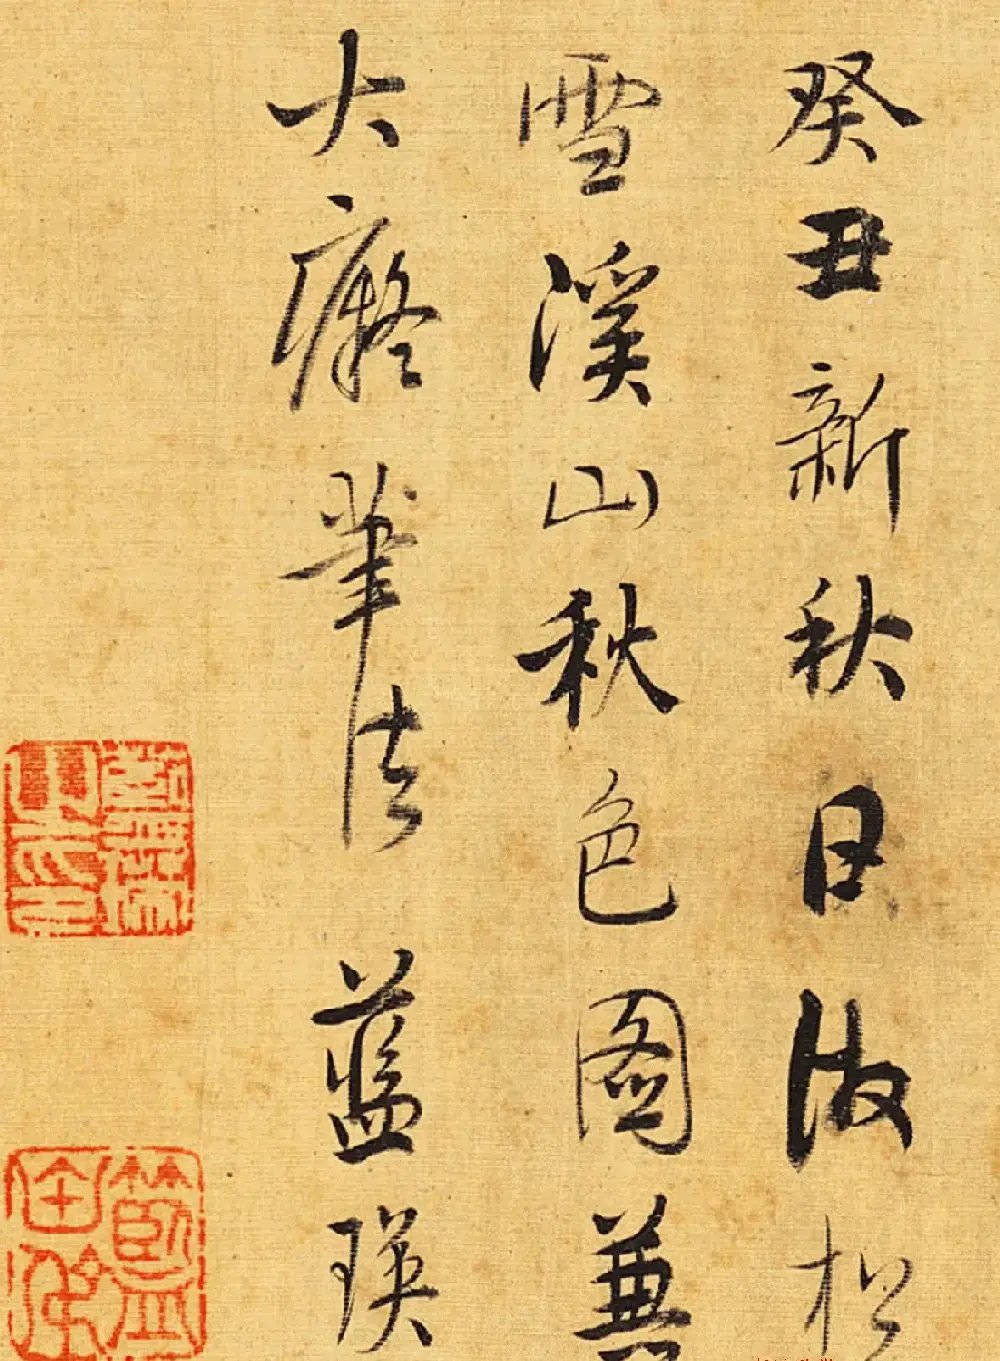 癸丑新秋日倣松
雪溪山秋色圖兼
大癡筆法藍瑛